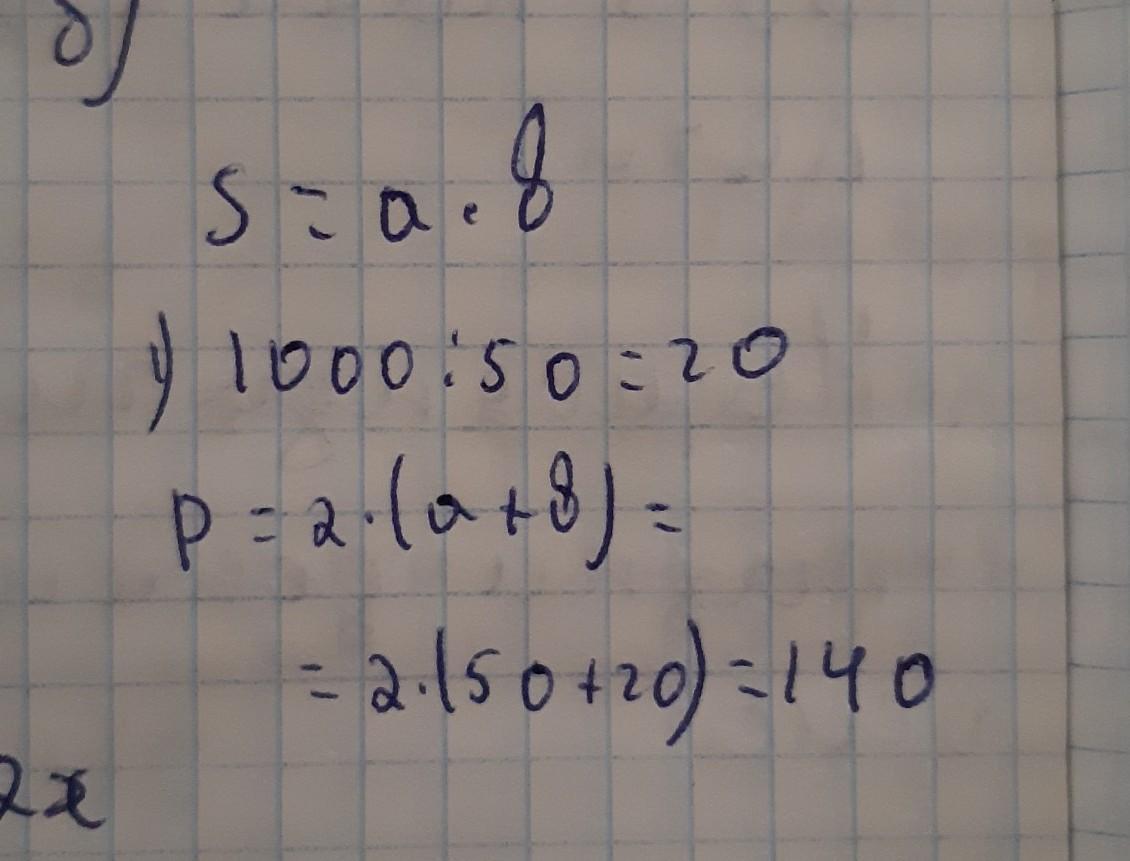 б)
S = a · b
1) 1000 : 50 = 20
P = 2 · (a + b) =
= 2 · (50 + 20) = 140
2x